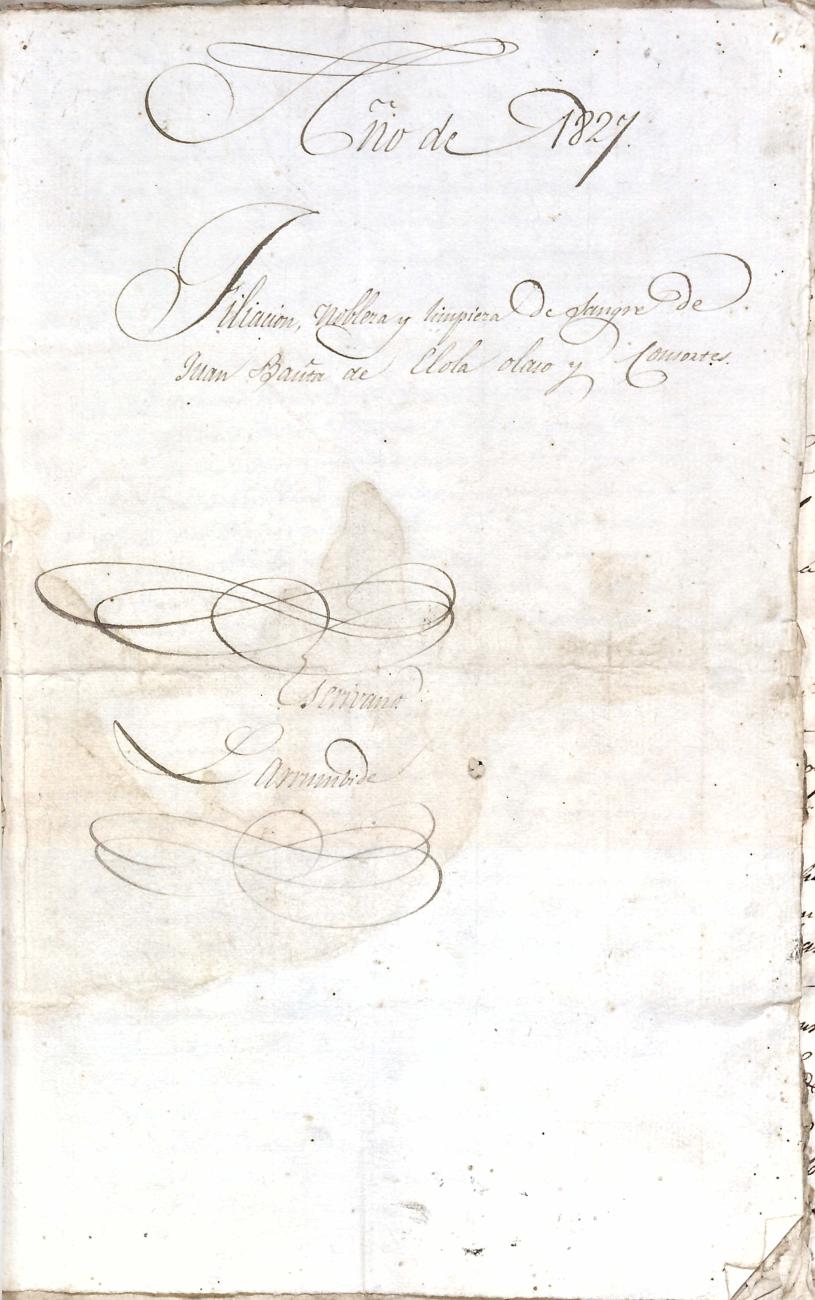 Año de 1827.
Filiacion, Nobleza y limpieza De Sangre de
Juan Bauta de Elola olaso y Consortes.
Escrivano
Larrumbide